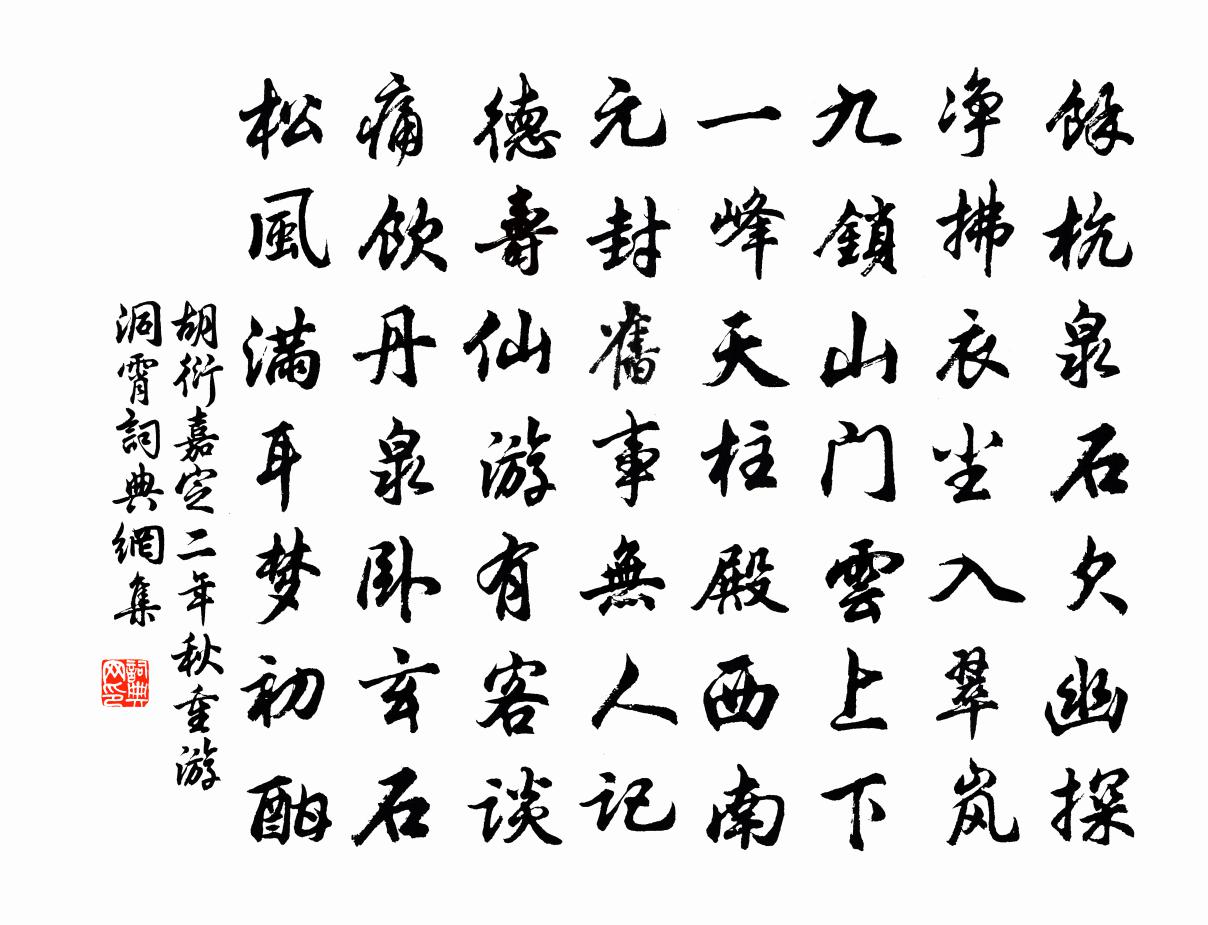 餘杭泉石欠幽探
净拂衣尘入翠岚
九鎖山门雲上下
一峰天柱殿西南
元封舊事無人记
德壽仙游有客谈
痛飲丹泉卧玄石
松風满耳梦初酣
胡衍嘉定二年秋重游
洞霄詞典網集
詞典网印